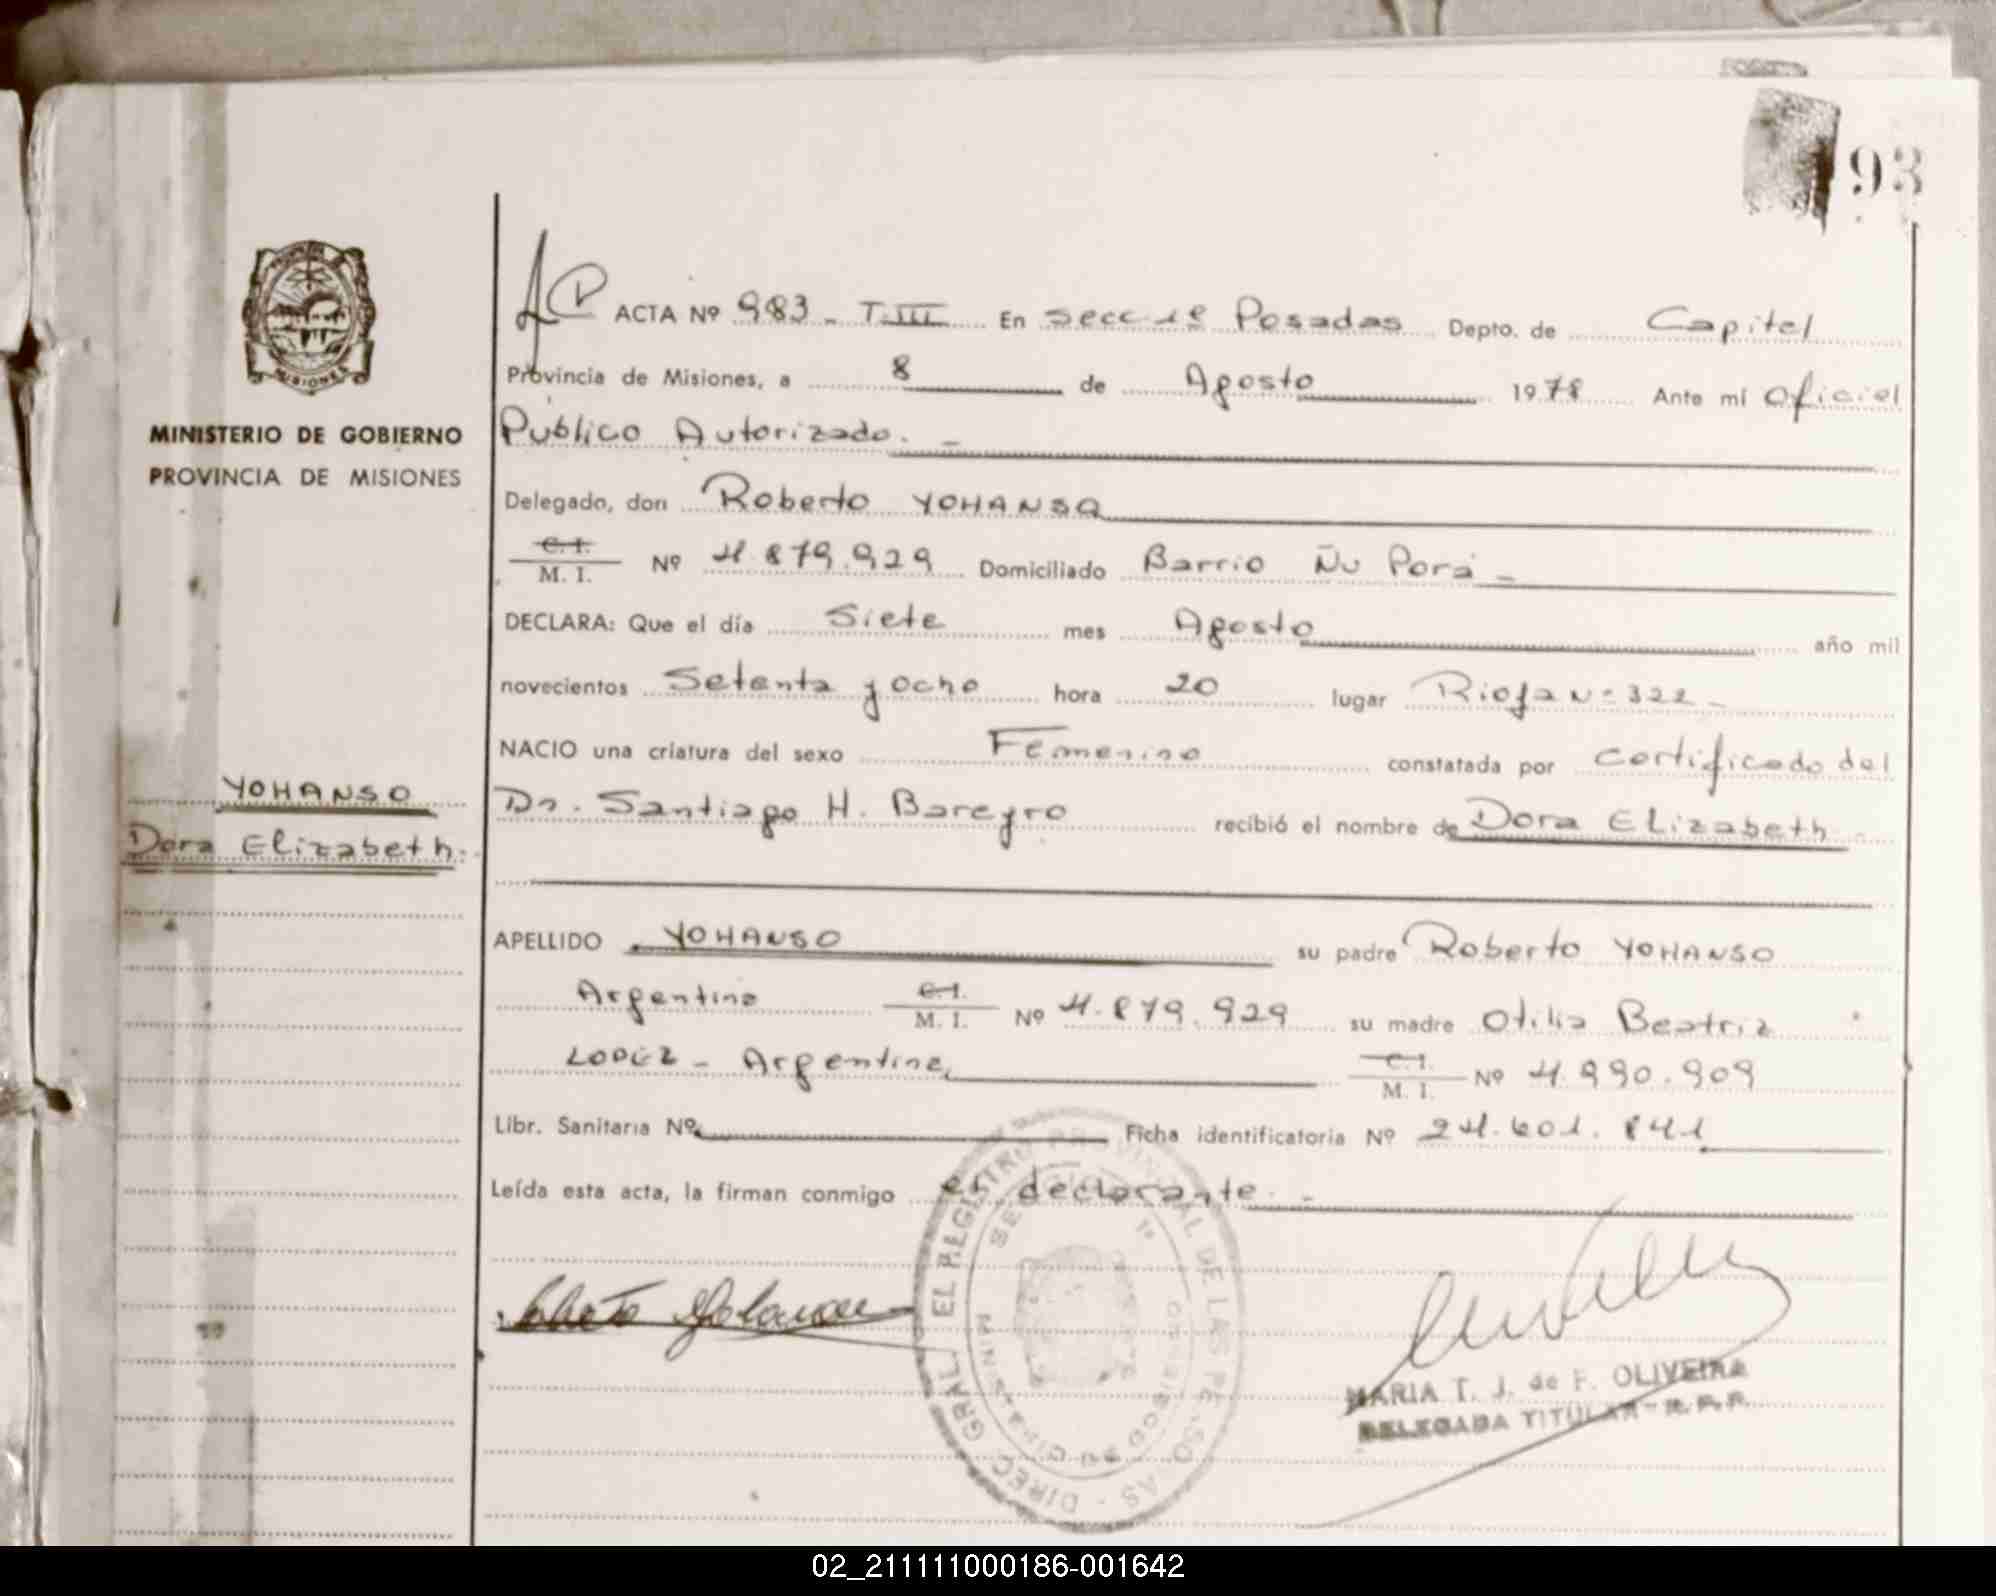 93
MISIONES
MINISTERIO DE GOBIERNO
PROVINCIA DE MISIONES
YOHANSO
Dora Elizabeth.
ACTA Nº 983 - T.III En Secc 1ª Posadas Depto. de Capital
Provincia de Misiones, a 8 de Agosto 1978 Ante mí Oficial
Público Autorizado. -
Delegado, don Roberto YOHANSO
C.I. / M. I. Nº 4.879.929 Domiciliado Barrio Ñu Porá -
DECLARA: Que el día Siete mes Agosto año mil
novecientos Setenta y ocho hora 20 lugar Rioja Nº 322 -
NACIO una criatura del sexo Femenino constatada por certificado del
Dr. Santiago H. Bareyro recibió el nombre de Dora Elizabeth
APELLIDO YOHANSO su padre Roberto YOHANSO
Argentino C.I. / M. I. Nº 4.879.929 su madre Otilia Beatriz
LOPEZ - Argentina, C.I. / M. I. Nº 4.990.909
Libr. Sanitaria Nº Ficha identificatoria Nº 24.601.841
Leída esta acta, la firman conmigo el declarante. -
DIREC. GRAL. EL REGISTRO PROVINCIAL DE LAS PERSONAS
MARIA T. J. de F. OLIVEIRA
DELEGADA TITULAR - R.P.P.
02_211111000186-001642